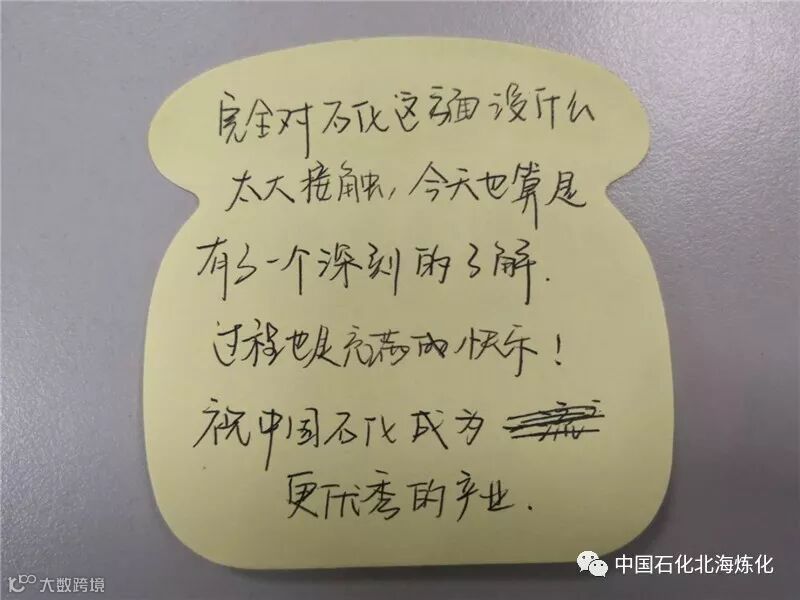 完全对石化这方面没什么
太大接触,今天也算是
有了一个深刻的了解.
过程也是充满成快乐!
祝中国石化成为
更优秀的产业.
中国石化北海炼化
大数跨境